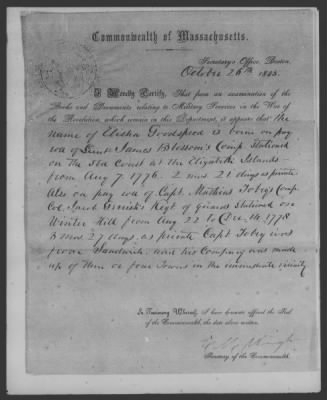 Commonwealth of Massachusetts.
Secretary's Office, Boston,
October 26th 1843.
I Hereby Certify, That from an examination of the
Books and Documents relating to Military Services in the War of
the Revolution, which remain in this Department, it appears that the
name of Elisha Goodspeed is borne on pay
roll of Lieut James Blossom's Comp. Stationed
on the Sea Coast at the Elizabeth Islands
from Aug 7. 1776. 2 mos 21 days as private
Also on pay roll of Capt. Mathias Tobey's Comp
Col. Jacob Gerrish's Regt of guards stationed on
Winter Hill from Aug 22 to Dec. 14. 1778
3 mos 27 days. as private Capt Tobey was
from Sandwich and his Company was made
up of Men in four Towns in the immediate vicinity
In Testimony Whereof, I have hereunto affixed the Seal
of the Commonwealth, the date above written.
Secretary of the Commonwealth.